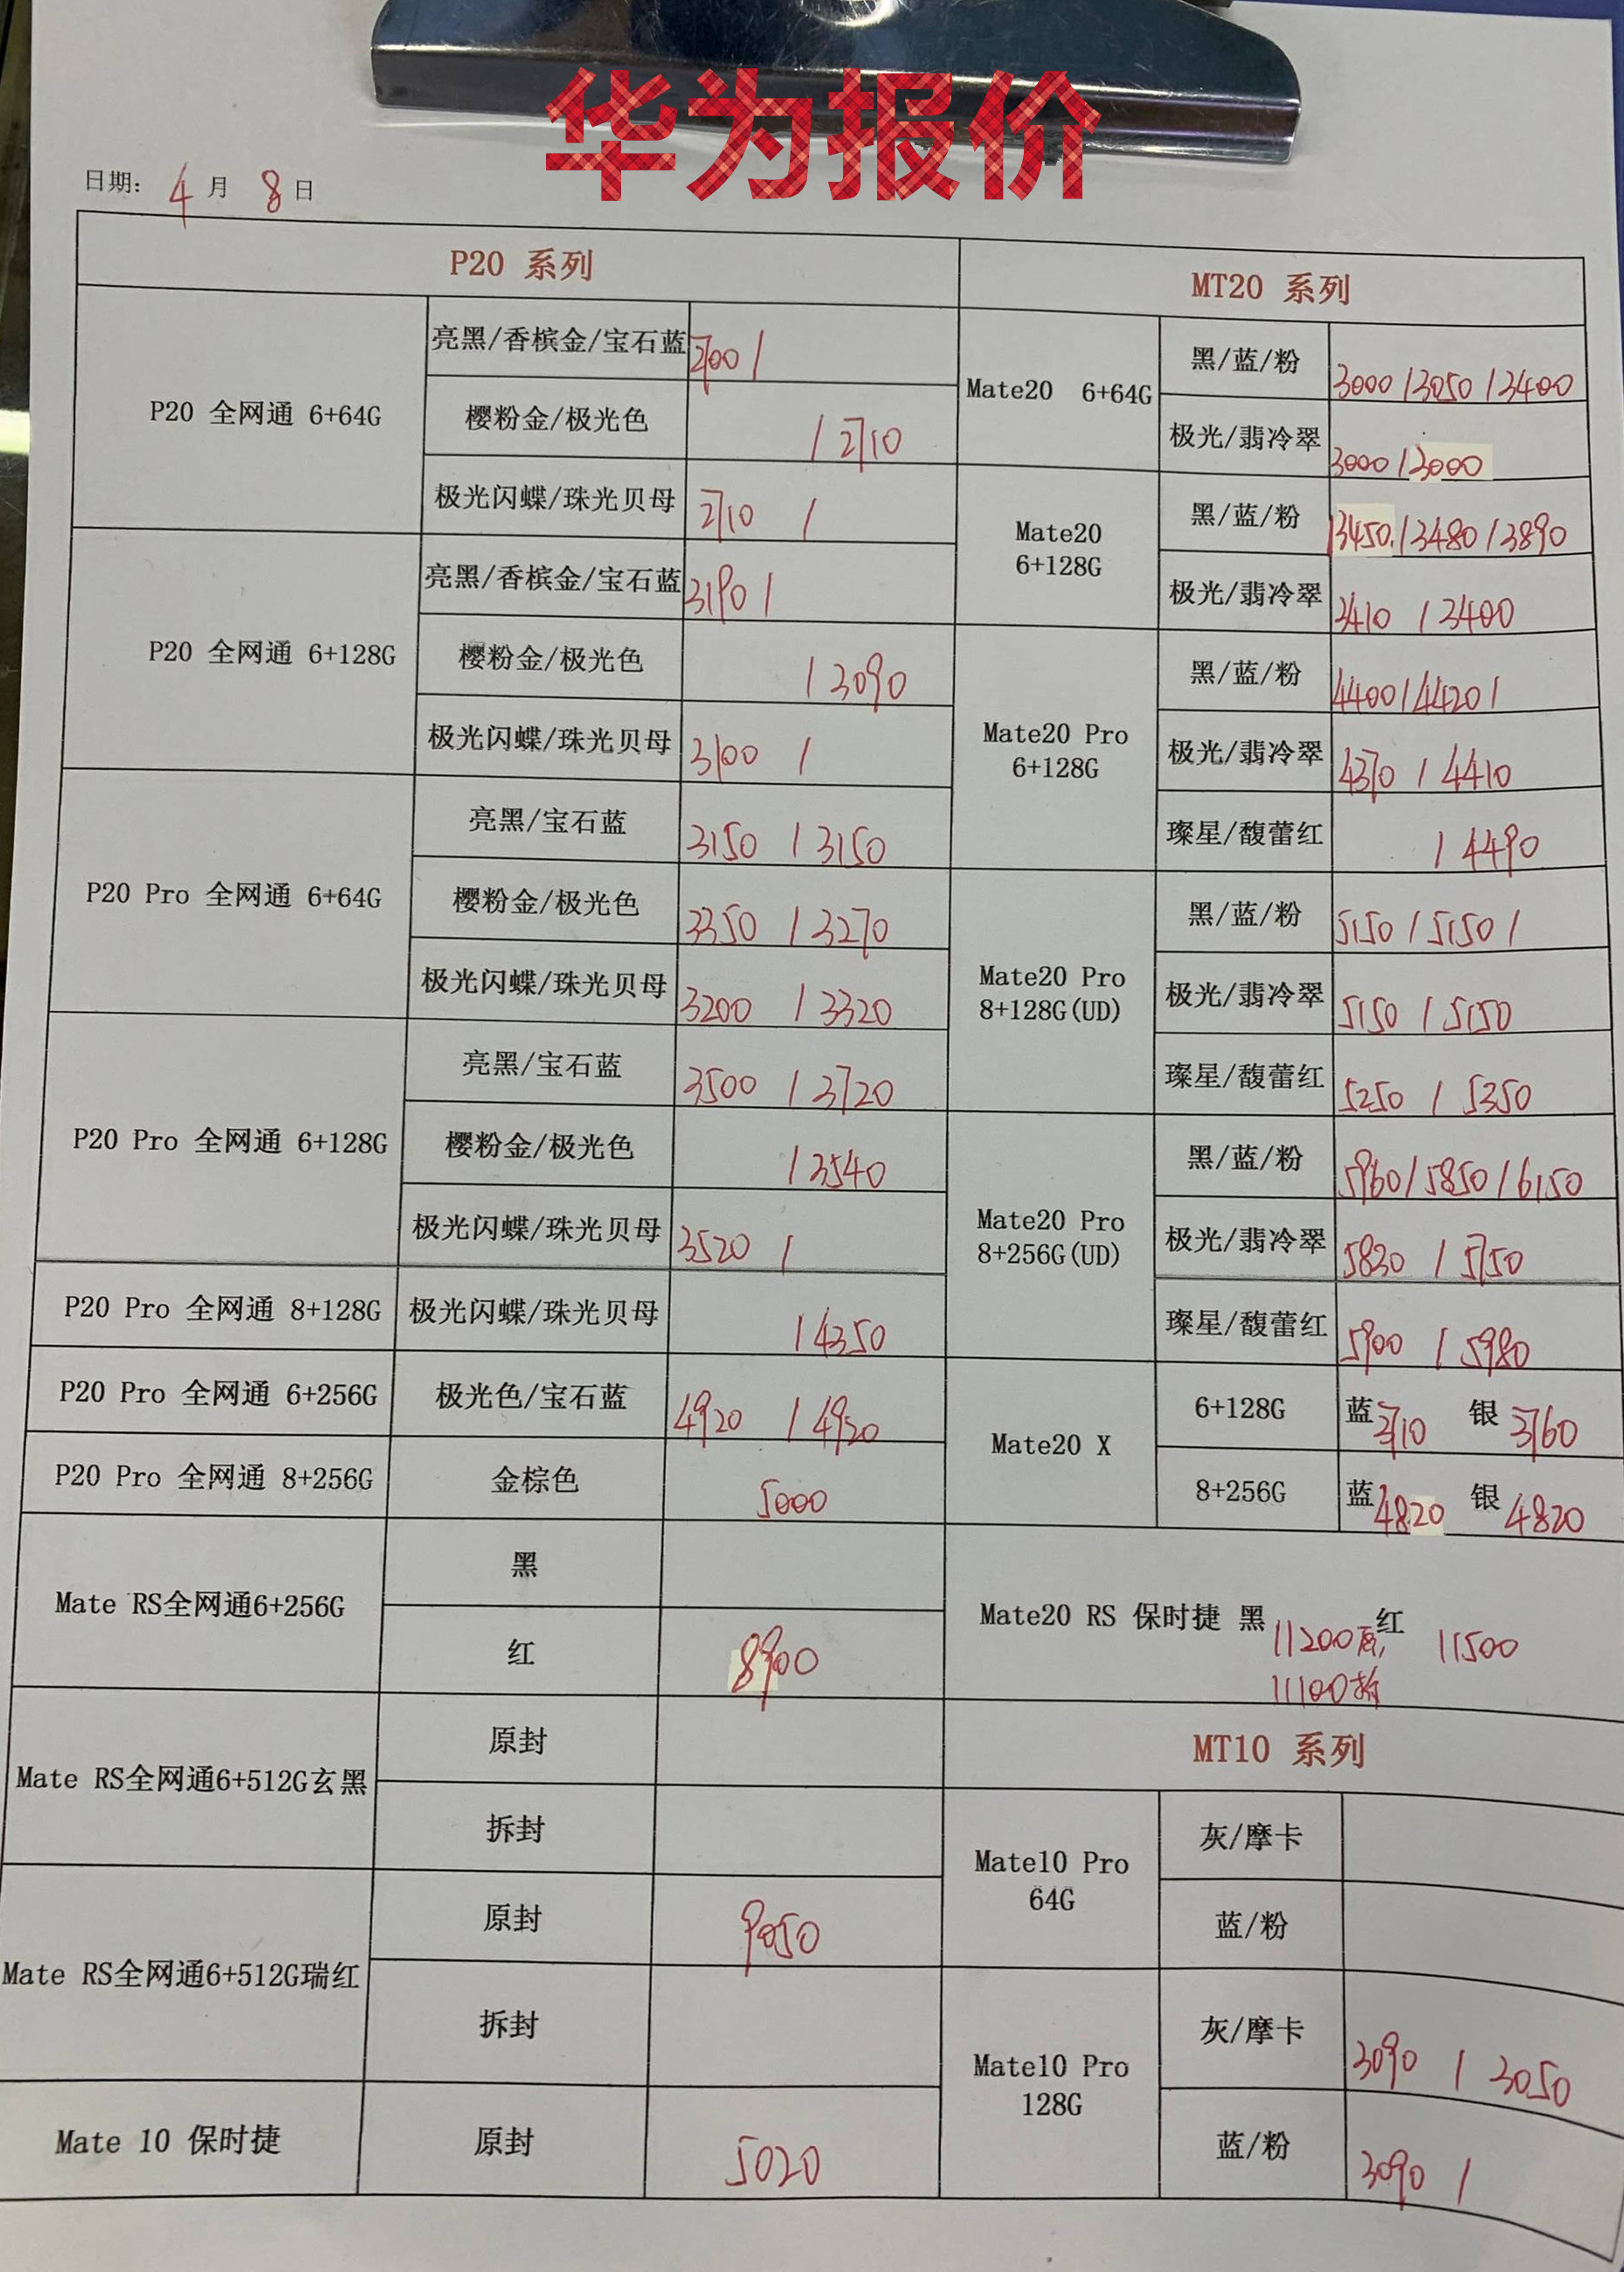 华为报价
日期: 4 月 8 日
P20 系列
P20 全网通 6+64G
亮黑/香槟金/宝石蓝 2700 /
樱粉金/极光色 / 2710
极光闪蝶/珠光贝母 2710 /
P20 全网通 6+128G
亮黑/香槟金/宝石蓝 3190 /
樱粉金/极光色 / 3090
极光闪蝶/珠光贝母 3100 /
P20 Pro 全网通 6+64G
亮黑/宝石蓝 3150 / 3150
樱粉金/极光色 3350 / 3270
极光闪蝶/珠光贝母 3200 / 3320
P20 Pro 全网通 6+128G
亮黑/宝石蓝 3500 / 3720
樱粉金/极光色 / 3540
极光闪蝶/珠光贝母 3520 /
P20 Pro 全网通 8+128G 极光闪蝶/珠光贝母 / 4350
P20 Pro 全网通 6+256G 极光色/宝石蓝 4920 / 4920
P20 Pro 全网通 8+256G 金棕色 5000
Mate RS全网通6+256G
黑
红 8900
Mate RS全网通6+512G玄黑
原封
拆封
Mate RS全网通6+512G瑞红
原封 9050
拆封
Mate 10 保时捷 原封 5020
MT20 系列
Mate20 6+64G
黑/蓝/粉 3000 / 3050 / 3400
极光/翡冷翠 3000 / 3000
Mate20
6+128G
黑/蓝/粉 3450 / 3480 / 3890
极光/翡冷翠 3410 / 3400
Mate20 Pro
6+128G
黑/蓝/粉 4400 / 4420 /
极光/翡冷翠 4370 / 4410
璨星/馥蕾红 / 4490
Mate20 Pro
8+128G(UD)
黑/蓝/粉 5150 / 5150 /
极光/翡冷翠 5150 / 5150
璨星/馥蕾红 5250 / 5350
Mate20 Pro
8+256G(UD)
黑/蓝/粉 5960 / 5850 / 6150
极光/翡冷翠 5830 / 5750
璨星/馥蕾红 5900 / 5980
Mate20 X
6+128G 蓝 3710 银 3760
8+256G 蓝 4820 银 4820
Mate20 RS 保时捷 黑 11200原 红 11500
11100拆
MT10 系列
Mate10 Pro
64G
灰/摩卡
蓝/粉
Mate10 Pro
128G
灰/摩卡 3090 / 3050
蓝/粉 3090 /